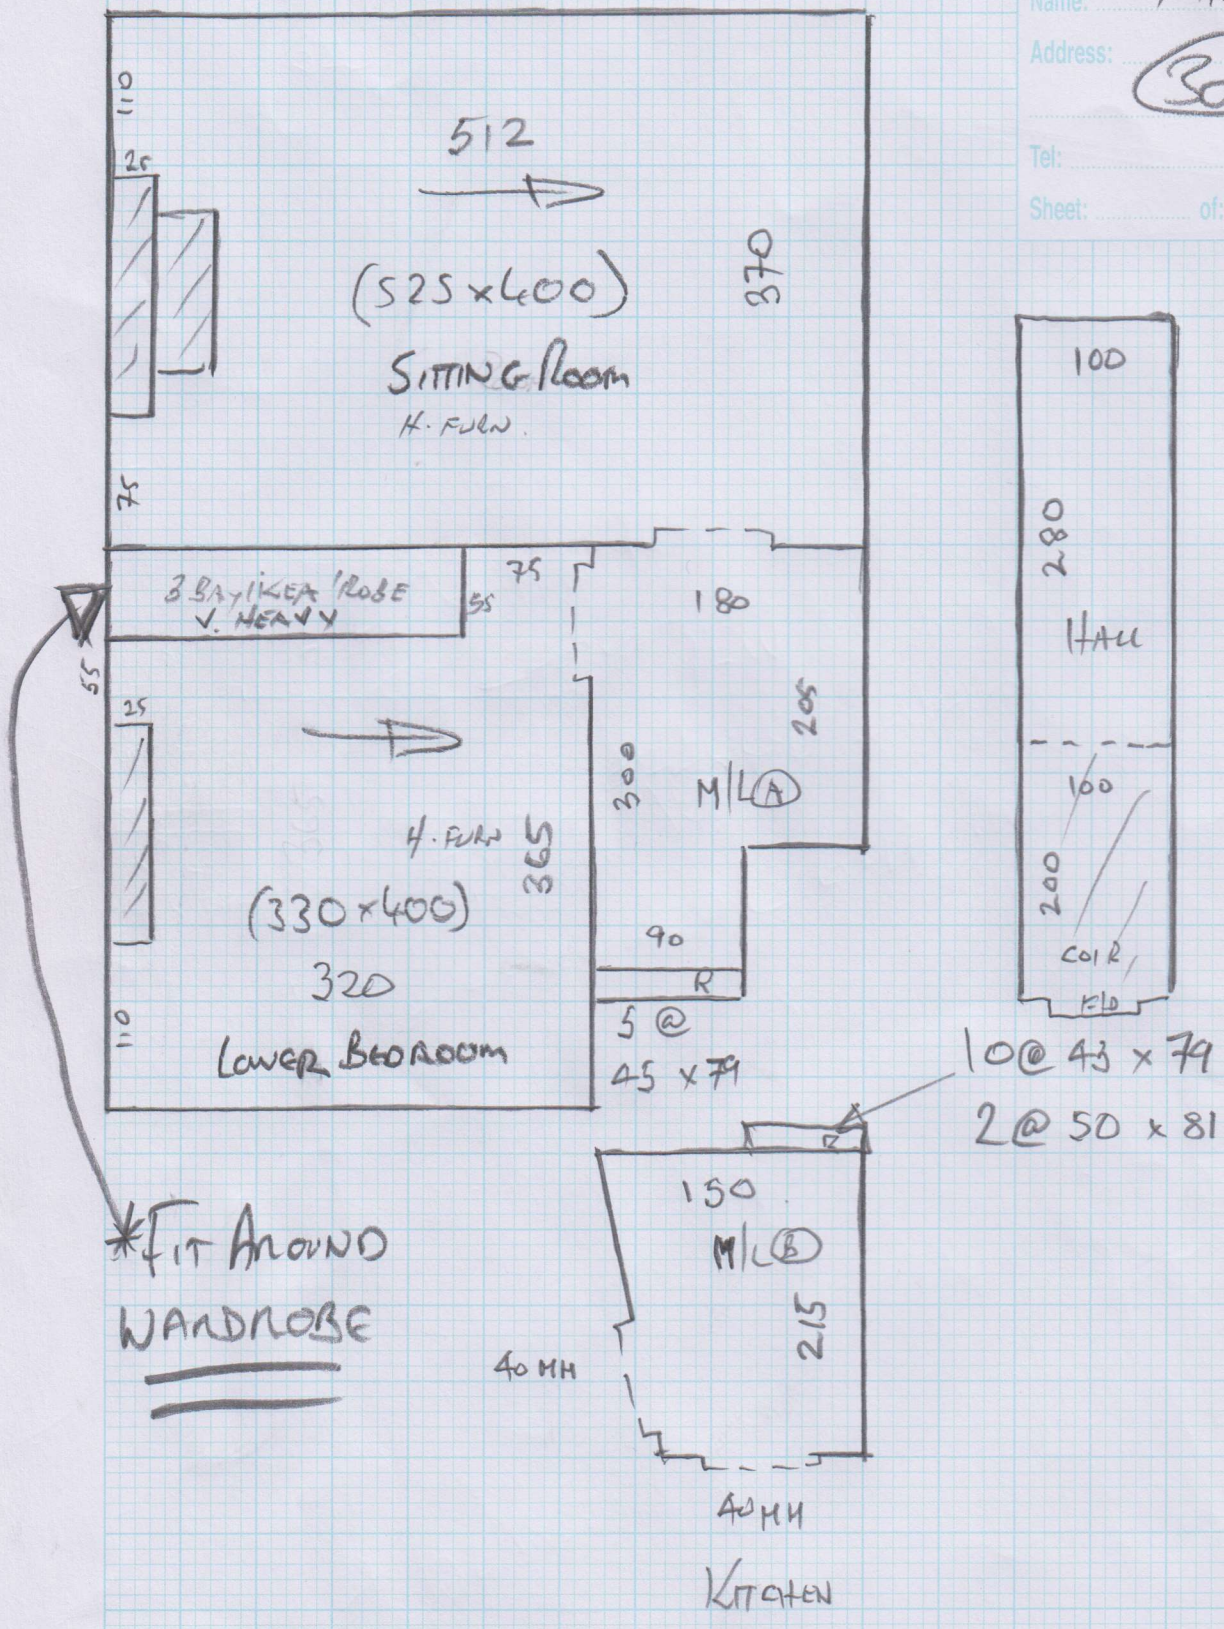 Name:
Address:
Tel:
Sheet: of:
110
25
512
370
(525 x 400)
SITTING ROOM
H. FURN.
75
3 BAY IKEA 'ROBE
V. HEAVY
75
55
180
55
25
205
300
M/L (A)
H. FURN
365
(330 x 400)
320
LOWER BEDROOM
110
90
R
5 @
45 x 79
100
280
HALL
100
200
COIR
F/D
10 @ 43 x 79
2 @ 50 x 81
R
150
M/L (B)
215
40 MM
40 MM
KITCHEN
* FIT AROUND
WARDROBE